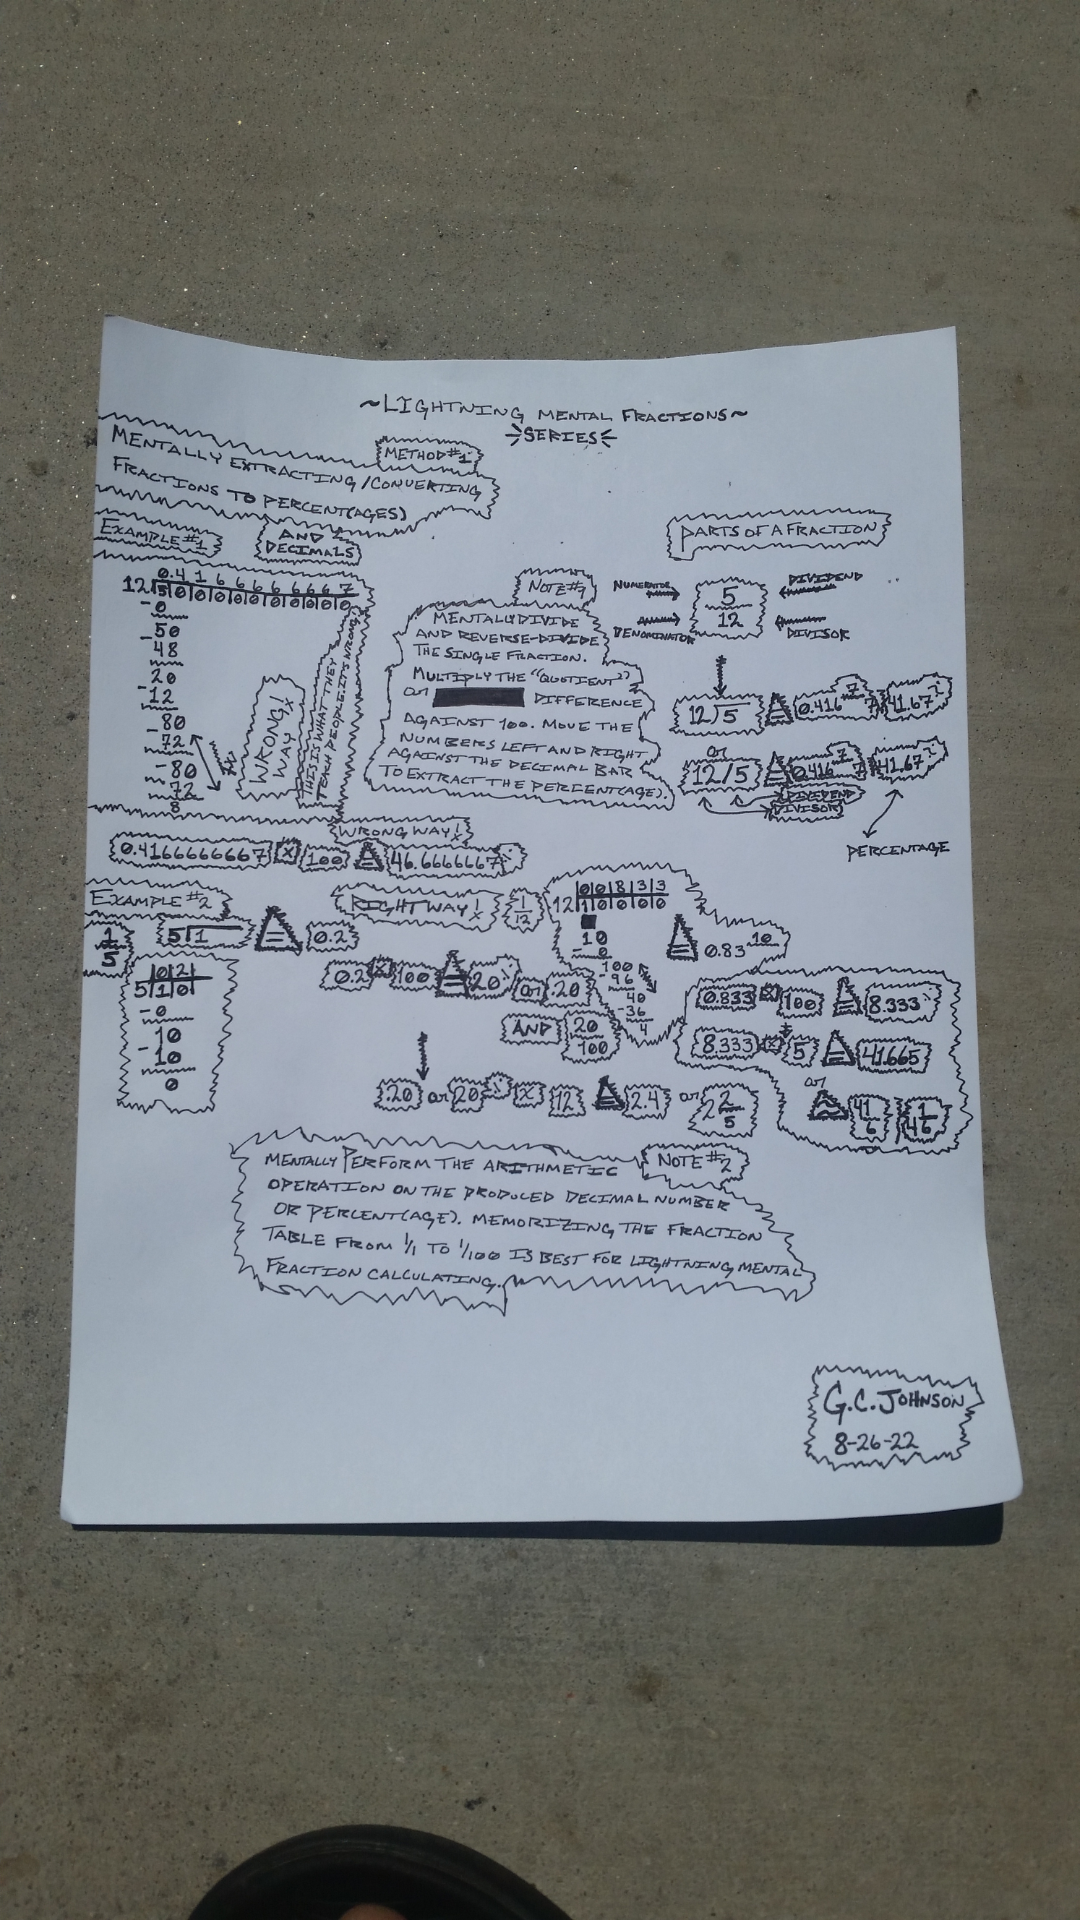 ~LIGHTNING MENTAL FRACTIONS~
SERIES
METHOD #1
MENTALLY EXTRACTING/CONVERTING
FRACTIONS TO PERCENT(AGES)
AND
DECIMALS
EXAMPLE #1
0.4 1 6 6 6 6 6 6 6 7
12 5 0 0 0 0 0 0 0 0 0 0
-0
50
-48
20
-12
80
-72
-80
72
8
WRONG! WAY
THIS IS WHAT THEY
TEACH PEOPLE. IT'S WRONG.
NOTE #1
MENTALLY DIVIDE
AND REVERSE-DIVIDE
THE SINGLE FRACTION.
MULTIPLY THE "QUOTIENT"
OR DIFFERENCE
AGAINST 100. MOVE THE
NUMBERS LEFT AND RIGHT
AGAINST THE DECIMAL BAR
TO EXTRACT THE PERCENT(AGE).
PARTS OF A FRACTION
NUMERATOR 5 DIVIDEND
DENOMINATOR 12 DIVISOR
12 5 = 0.416 7 41.67
OR
12/5 = 0.416 7 41.67
DIVIDEND
DIVISOR
PERCENTAGE
WRONG WAY!
0.4166666667 x 100 = 46.6666667
EXAMPLE #2
RIGHT WAY!
1/5
5 1 = 0.2
0 2
5 1 0
-0
10
-10
0
0.2 x 100 = 20 OR .20
AND 20/100
1/12
0 0 8 3 3
12 1 0 0 0 0
10
-0
100
-96
40
-36
4
= 0.83 10
0.833 x 100 = 8.333
8.333 x 5 = 41.665
OR
41/6 41/6
.20 OR 20 x 12 = 2.4 OR 2 2/5
NOTE #2
MENTALLY PERFORM THE ARITHMETIC
OPERATION ON THE PRODUCED DECIMAL NUMBER
OR PERCENT(AGE). MEMORIZING THE FRACTION
TABLE FROM 1/1 TO 1/100 IS BEST FOR LIGHTNING MENTAL
FRACTION CALCULATING.
G.C. JOHNSON
8-26-22